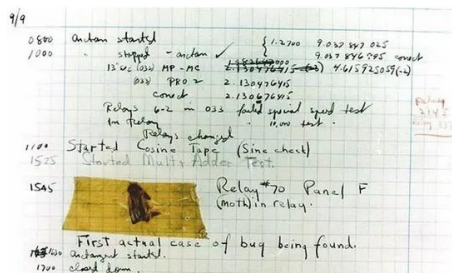 9/9
0800 antan started
1000 " stopped - antan ✓ { 1.2700 9.037 847 025
9.037 846 995 correct
13"uc (032) MP - MC 2.130476415 4.615925059(-2)
(033) PRO 2 2.130476415
correct 2.130676415
Relays 6-2 in 033 failed special speed test
in relay " 10,000 test.
Relays changed
1100 Started Cosine Tape (Sine check)
1525 Started Mult + Adder Test.
1545 Relay #70 Panel F
(moth) in relay.
First actual case of bug being found.
1630 antangent started.
1700 closed down.